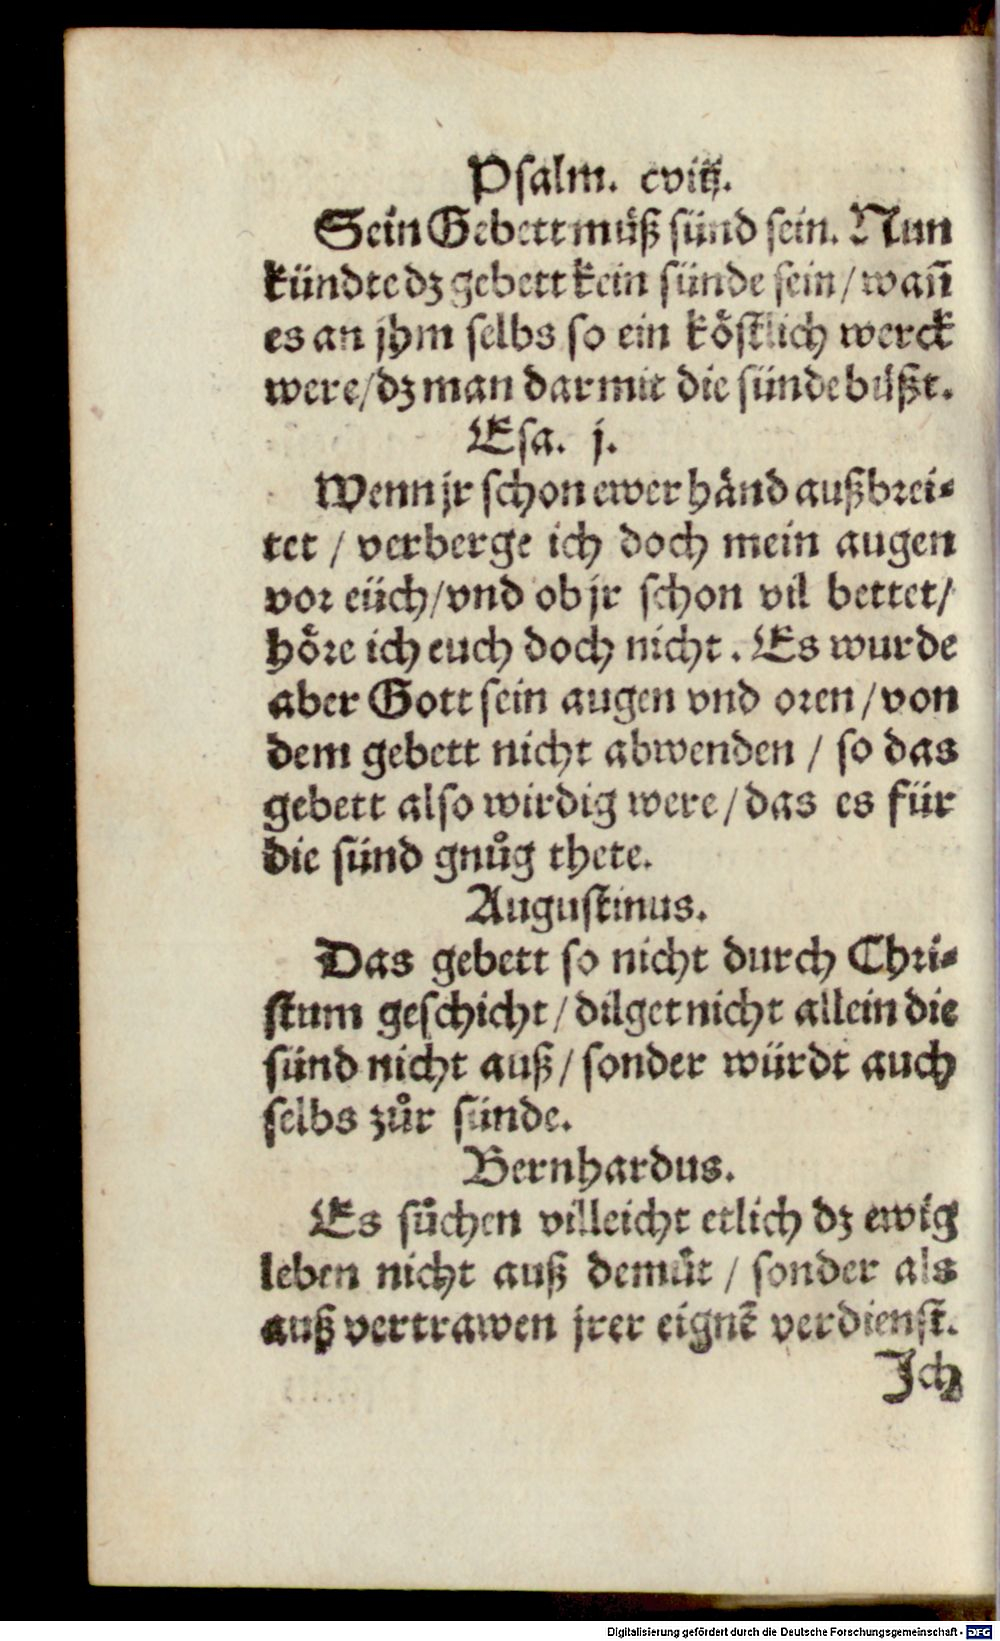 Psalm. cviij.
Sein Gebett muͤß sünd sein. Nun
kündte dz gebett kein sünde sein / wañ
es an jhm selbs so ein koͤstlich werck
were / dz man darmit die sünde buͤßt.
Esa. j.
Wenn jr schon ewer haͤnd außbrei-
tet / verberge ich doch mein augen
vor eüch / vnd ob jr schon vil bettet /
hoͤre ich euch doch nicht. Es wurde
aber Gott sein augen vnd oren / von
dem gebett nicht abwenden / so das
gebett also wirdig were / das es für
die sünd gnuͦg thete.
Augustinus.
Das gebett so nicht durch Chri-
stum geschicht / dilget nicht allein die
sünd nicht auß / sonder würdt auch
selbs zuͦr sünde.
Bernhardus.
Es suͦchen villeicht etlich dz ewig
leben nicht auß demuͤt / sonder als
auß vertrawen jrer eignē verdienst.
Ich
Digitalisierung gefördert durch die Deutsche Forschungsgemeinschaft - DFG